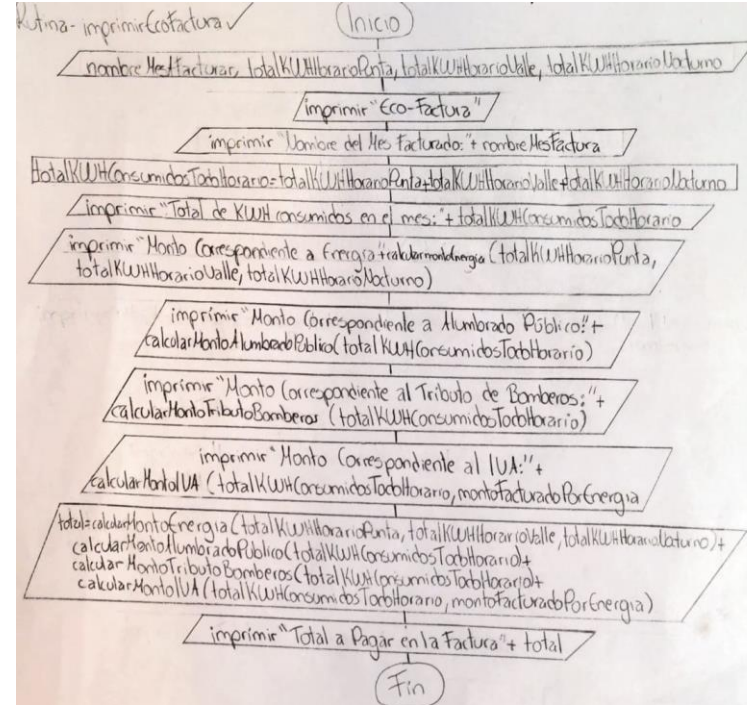 Rutina- imprimirEcoFactura ✓
Inicio
nombreMesAFacturar, totalKWHHorarioPunta, totalKWHHorarioValle, totalKWHHorarioNocturno
imprimir "Eco-Factura"
imprimir "Nombre del Mes Facturado:"+ nombreMesFactura
totalKWHConsumidosTodoHorario=totalKWHHorarioPunta+totalKWHHorarioValle+totalKWHHorarioNocturno
imprimir "Total de KWH consumidos en el mes:"+ totalKWHConsumidosTodoHorario
imprimir "Monto Correspondiente a Energía"+calcularmontoEnergia (totalKWHHorarioPunta,
totalKWHHorarioValle, totalKWHHorarioNocturno)
imprimir "Monto Correspondiente a Alumbrado Público:"+
calcularMontoAlumbradoPúblico(totalKWHConsumidosTodoHorario)
imprimir "Monto Correspondiente al Tributo de Bomberos:"+
calcularMontoTributoBomberos (totalKWHConsumidosTodoHorario)
imprimir "Monto Correspondiente al IUA:"+
calcularMontoIUA (totalKWHConsumidosTodoHorario, montoFacturadoPorEnergia
total=calcularMontoEnergia(totalKWHHorarioPunta, totalKWHHorarioValle, totalKWHHorarioNocturno)+
calcularMontoAlumbradoPúblico(totalKWHConsumidosTodoHorario)+
calcularMontoTributoBomberos(totalKWHConsumidosTodoHorario)+
calcularMontoIUA (totalKWHConsumidosTodoHorario, montoFacturadoPorEnergia)
imprimir "Total a Pagar en la Factura"+ total
Fin